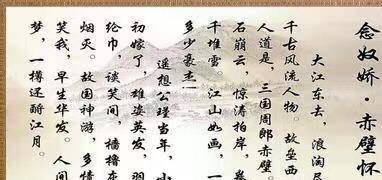 念奴娇·赤壁怀
大江东去，浪淘尽
千古风流人物。故垒西
人道是，三国周郎赤壁。
石崩云，惊涛拍岸，卷
千堆雪。江山如画，一
多少豪杰
遥想公瑾当年，小
初嫁了，雄姿英发，羽
纶巾，谈笑间，樯橹灰
烟灭。故国神游，多情
笑我，早生华发。人间
梦，一樽还酹江月。